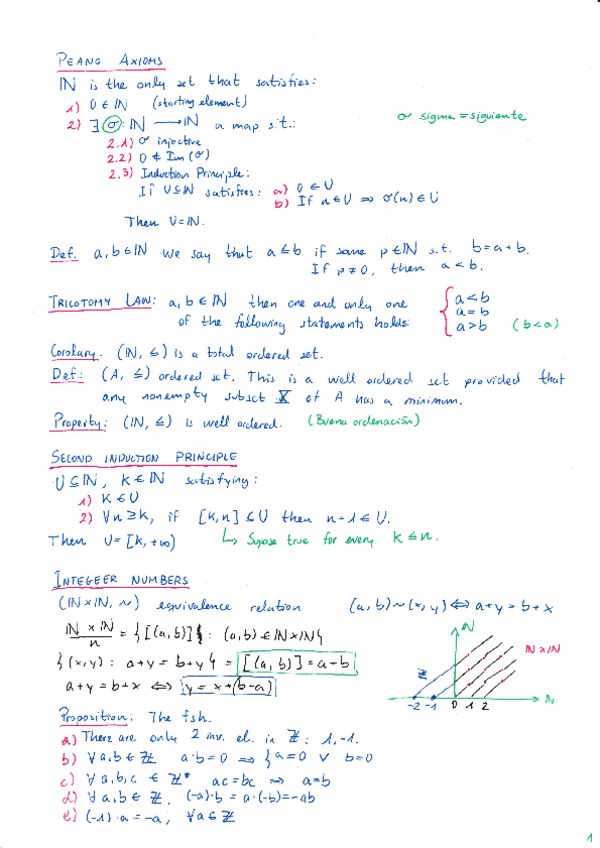 PEANO AXIOMS
ℕ is the only set that satisfies:
1) 0 ∈ ℕ (starting element)
2) ∃ σ: ℕ ⟶ ℕ a map s.t.:
σ sigma = siguiente
2.1) σ injective
2.2) 0 ∉ Im(σ)
2.3) Induction Principle:
If U ⊆ ℕ satisfies: a) 0 ∈ U
b) If n ∈ U ⇒ σ(n) ∈ U
Then U = ℕ.
Def. a, b ∈ ℕ We say that a ≤ b if some p ∈ ℕ s.t. b = a + b.
If p ≠ 0, then a < b.
TRICOTOMY LAW: a, b ∈ ℕ then one and only one
of the following statements holds:
{ a < b
a = b
a > b (b < a)
Corolary. (ℕ, ≤) is a total ordered set.
Def.: (A, ≤) ordered set. This is a well ordered set provided that
any nonempty subset X of A has a minimum.
Property: (ℕ, ≤) is well ordered. (Buena ordenación)
SECOND INDUCTION PRINCIPLE
U ⊆ ℕ, K ∈ ℕ satisfying:
1) K ∈ U
2) ∀n ≥ k, if [k, n] ⊆ U then n+1 ∈ U.
Then U = [k, +∞) ↳ Supose true for every k ≤ n.
INTEGEER NUMBERS
(ℕ×ℕ, ~) equivalence relation (a, b) ~ (x, y) ⇔ a+y = b+x
ℕ×ℕ/~ = { [(a, b)] : (a, b) ∈ ℕ×ℕ }
{ (x, y) : a+y = b+y } = [(a, b)] = a-b
a+y = b+x ⇔ y = x+(b-a)
ℕ
ℕ×ℕ
ℤ
ℕ
-2 -1 0 1 2
Proposition: The fsh.
a) There are only 2 inv. el. in ℤ: 1, -1.
b) ∀ a, b ∈ ℤ a·b = 0 ⇒ { a = 0 ∨ b = 0
c) ∀ a, b, c ∈ ℤ* ac = bc ⇒ a = b
d) ∀ a, b ∈ ℤ, (-a)·b = a·(-b) = -ab
e) (-1)·a = -a, ∀a ∈ ℤ
1